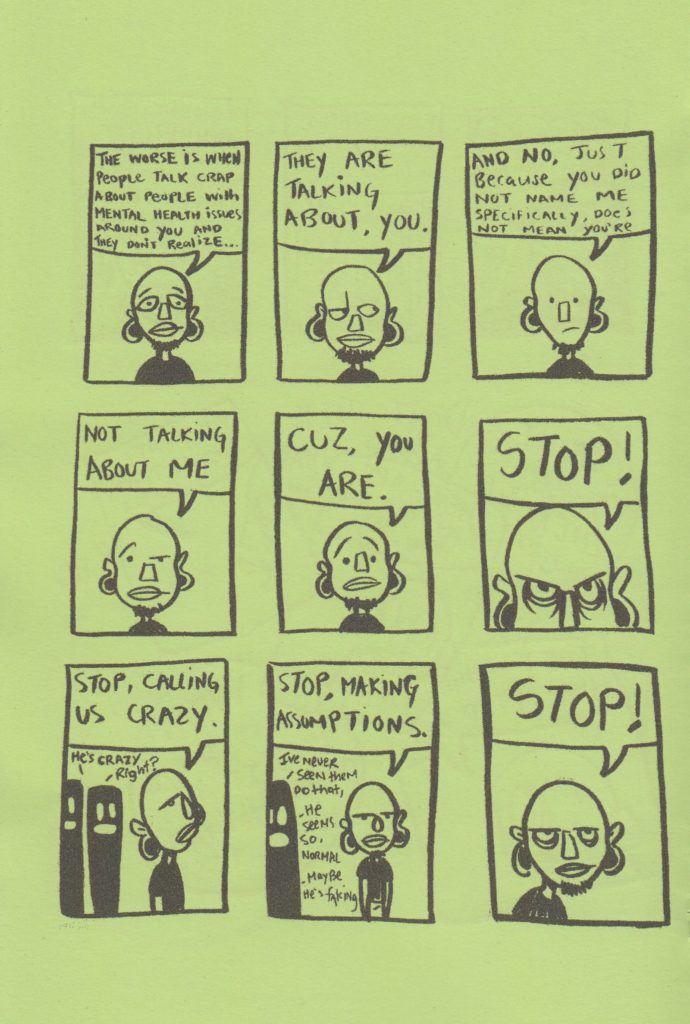 THE WORSE is WHEN
People TALK CRAP
ABOUT PEOPLE with
MENTAL HEALTH issues
AROUND YOU AND
THEY DON'T Realize...
THEY ARE
TALKING
ABOUT, YOU.
AND NO, JUST
Because you DiD
NOT NAME ME
SPECIFICALLY, DOES
NOT MEAN YOU'RE
NOT TALKING
ABOUT ME
CUZ, you
ARE.
STOP!
STOP, CALLING
US CRAZY.
He's CRAZY,
Right?
STOP, MAKING
ASSUMPTIONS.
I've NEVER
seen them
Do that,
.. He
seems
so,
NORMAL
.. MAYBE
He's faking
STOP!